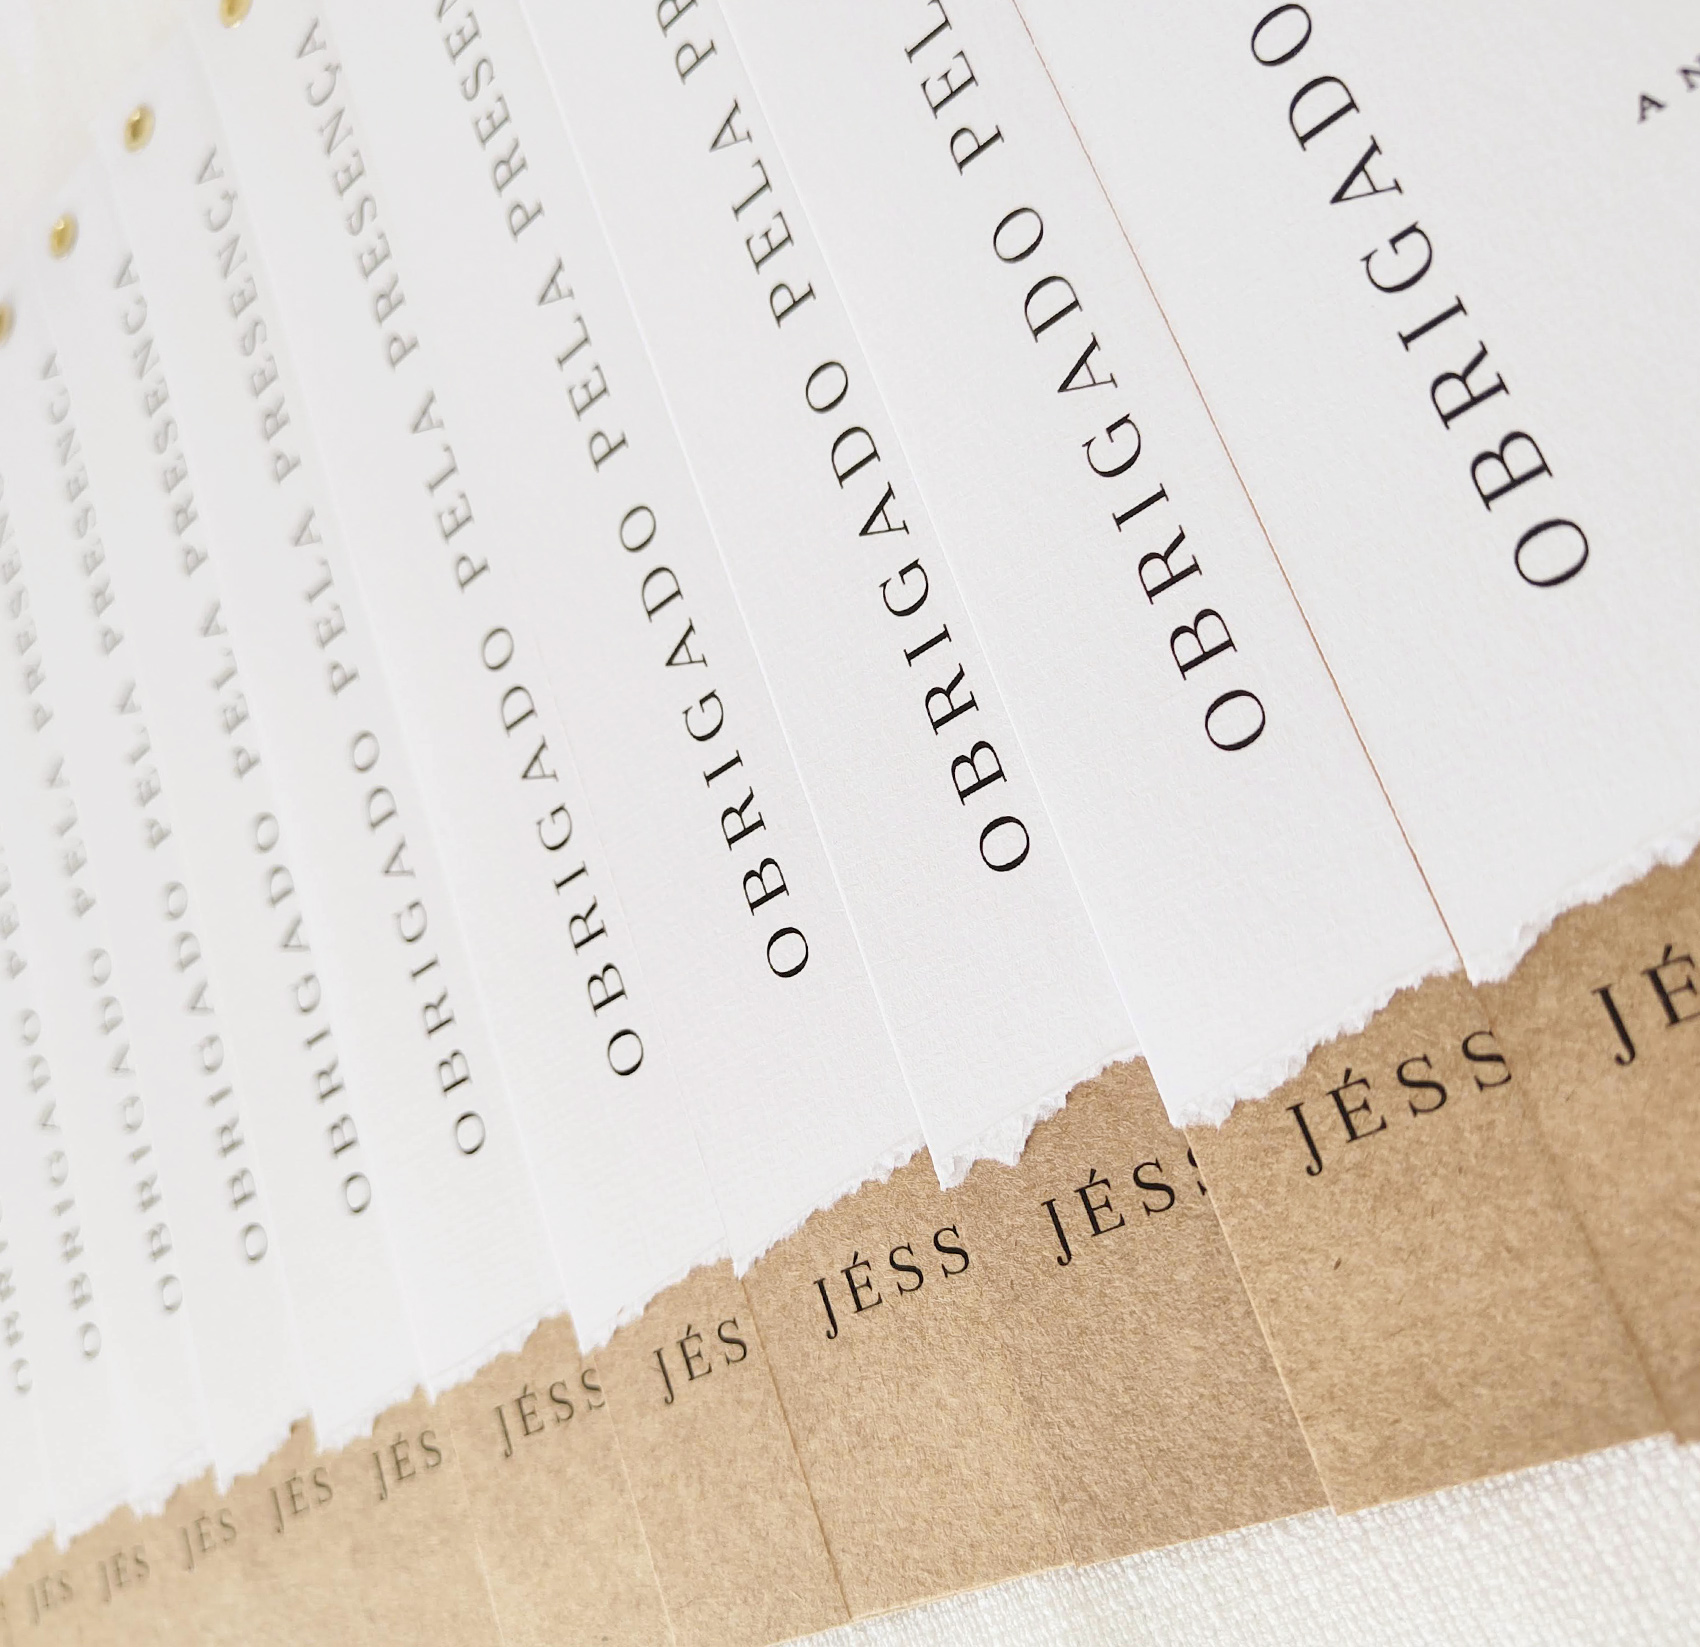 OBRIGADO PELA PRESENÇA
OBRIGADO PELA PRESENÇA
OBRIGADO PELA PRESENÇA
OBRIGADO PELA PRESENÇA
OBRIGADO PELA PRESENÇA
OBRIGADO PELA PRESEN
OBRIGADO PELA PR
OBRIGADO PEL
OBRIGADO
JÉS
JÉS
JÉS
JÉS
JÉS
JÉSS
JÉS
JÉSS
JÉSS
JÉSS
JÉ